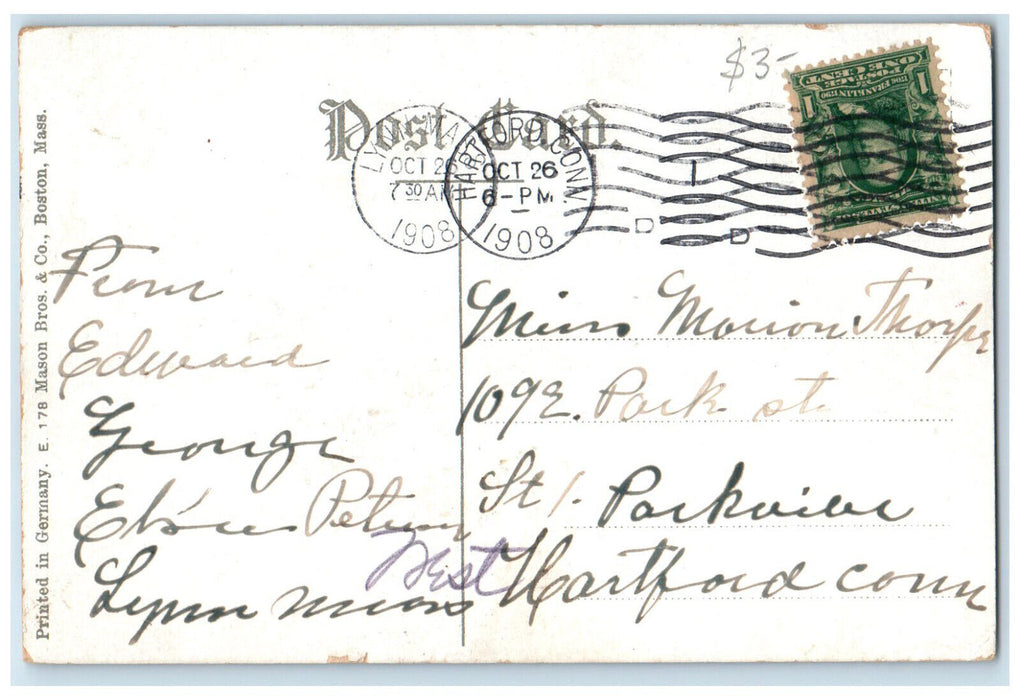 $3-
Post Card.
LYNN, MA
OCT 26
7 30 AM
1908
HARTFORD, CONN
OCT 26
6-PM
1908
1
D
D
ONE CENT
POSTAGE
1
1
Printed in Germany. E. 178 Mason Bros. & Co., Boston, Mass.
From
Edward
George
Lynn mass
Miss Marion Thorpe
1092. Park st.
St. Parkville
West Hartford conn